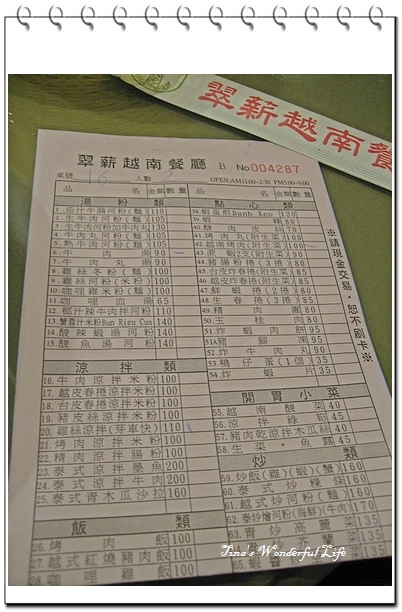 翠薪越南餐
翠薪越南餐廳 B No 004287
桌號 16 人數 2 OPEN:AM11:00~2:30 PM5:00~9:00
品名 金額 數量
湯粉類
1.茄汁牛腩河粉(麵) 110
2.生牛肉河粉(麵) 105
3.生牛肉河粉加牛肉丸 130
4.牛肉丸河粉(麵) 105
5.熟牛肉河粉(麵) 105
6.牛肉湯 90
7.牛肉丸湯 90
8.雞絲冬粉(麵) 100
9.雞絲河粉(麵) 100
10.咖哩雞米粉(麵) 100
11.咖哩血湯 65
12.椰汁辣牛肉河粉 110
13.蟹香汁米粉Bun Rieu Cua 140
14.酸辣蝦湯河粉 140
15.酸魚湯河粉 140
涼拌類
16.牛肉涼拌米粉 100
17.越皮春捲涼拌米粉 100
18.台皮春捲涼拌米粉 100
19.豬皮絲涼拌米粉 100
20.雞絲涼拌(芽車快) 110
21.烤肉涼拌米粉 100
22.精肉涼拌腸粉 100
23.泰式涼拌墨魚 200
24.泰式涼拌牛肉 200
25.泰式青木瓜沙拉 160
飯類
26.烤肉飯 100
27.越式紅燒豬肉飯 100
28.咖哩雞飯 100
品名 金額 數量
點心類
38.蝦蛋煎Banh Xeo 120
80
40.酸肉皮絲 70
41.烤肉丸(附生菜) 100
42.越南烤肉(附生菜) 100
43.蔗蝦2支(附生菜) 90
44.豬腸粉捲(3捲) 80
45.台皮炸春捲(附生菜) 85
46.越皮炸春捲(附生菜) 85
47.鮮蝦捲(2捲) 80
48.生春捲(3捲) 85
49.精肉團 80
50.玉桂肉 80
51.炸蝦肉餅 95
51A豬腳凍 95
52.炸牛肉丸 90
53.鴨仔蛋(1個) 35
54.炸蝦片 35
開胃小菜
55.越南酸菜 40
56.涼拌綠筍 45
57.豬肉乾涼拌木瓜絲
58.生菜・魚露 45
炒類
59.炒飯(雞)(蝦)(蟹) 160
60.泰式炒粿條 160
61.越式炒河粉(麵) 170
62.泰炒燴河粉(海鮮)(牛肉) 170
63.青炒高麗菜 135
135
135
※請現金交易・恕不刷卡※
Tina's Wonderful Life